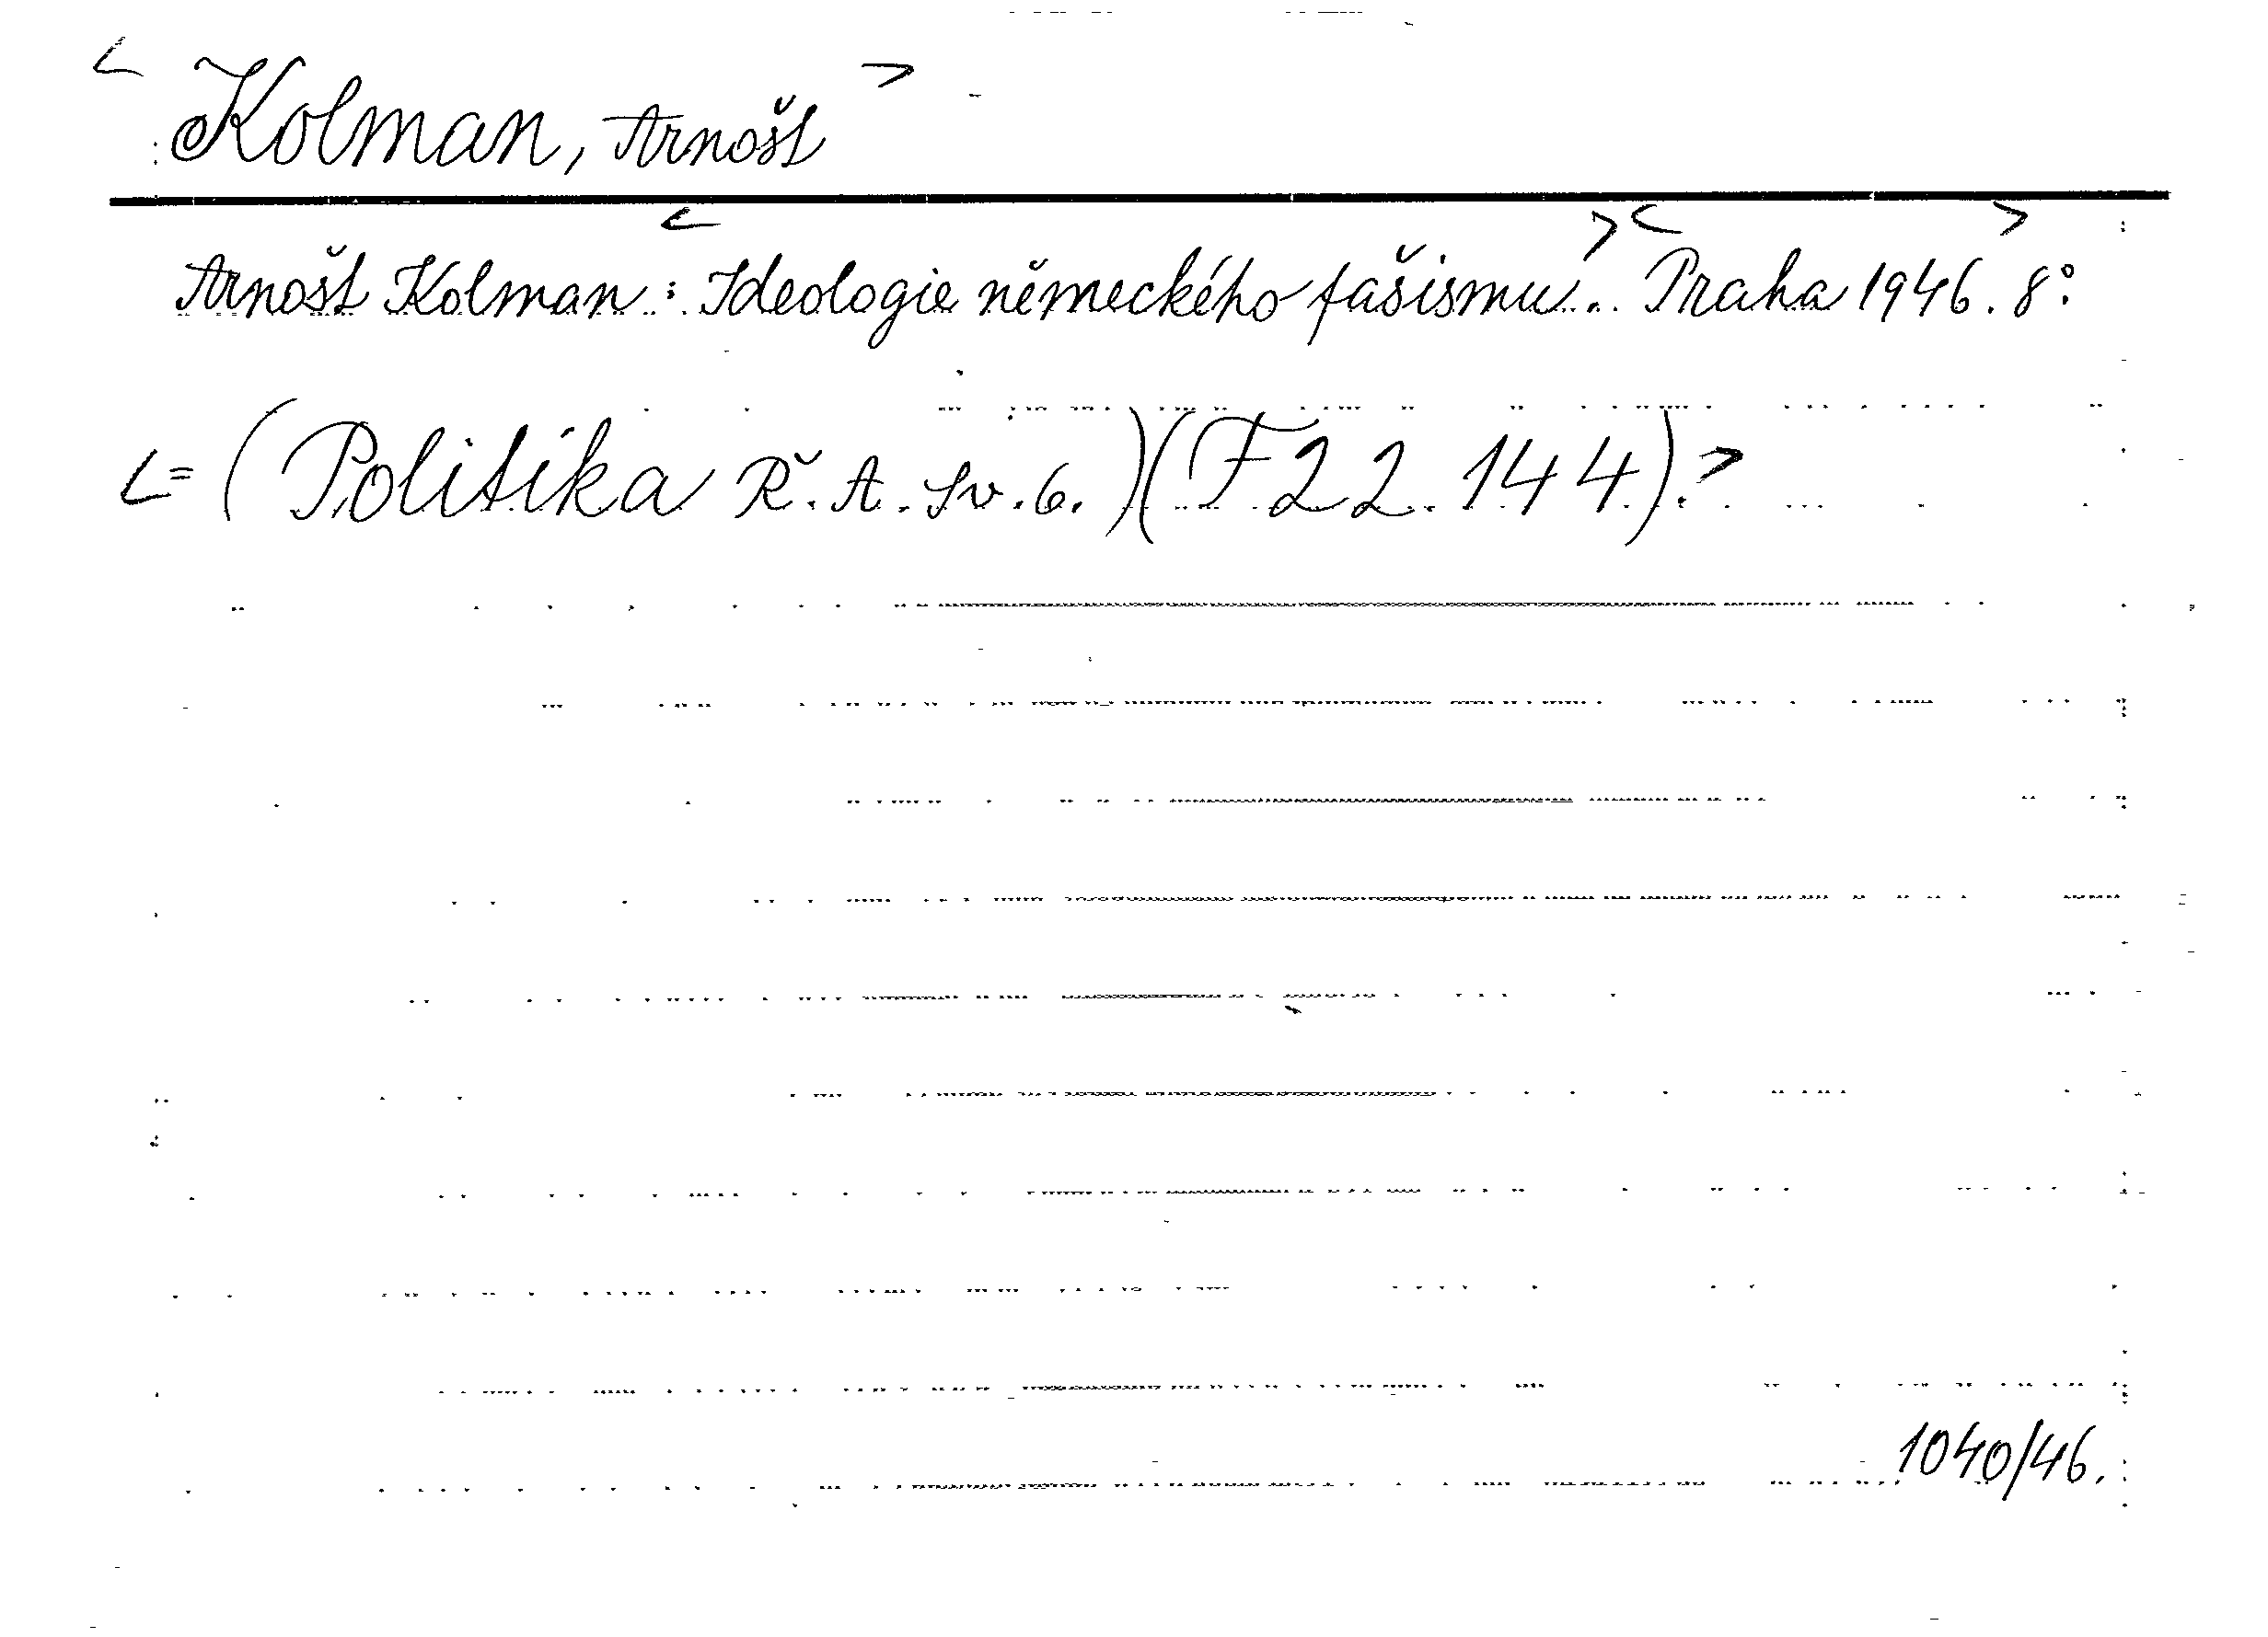 < Kolman, Arnošt >
Arnošt Kolman: < Ideologie německého fašismu... > < Praha 1946. > 8°.
<= (Politika Ř. A. Sv. 6.) (F 22.144). >
1040/46.